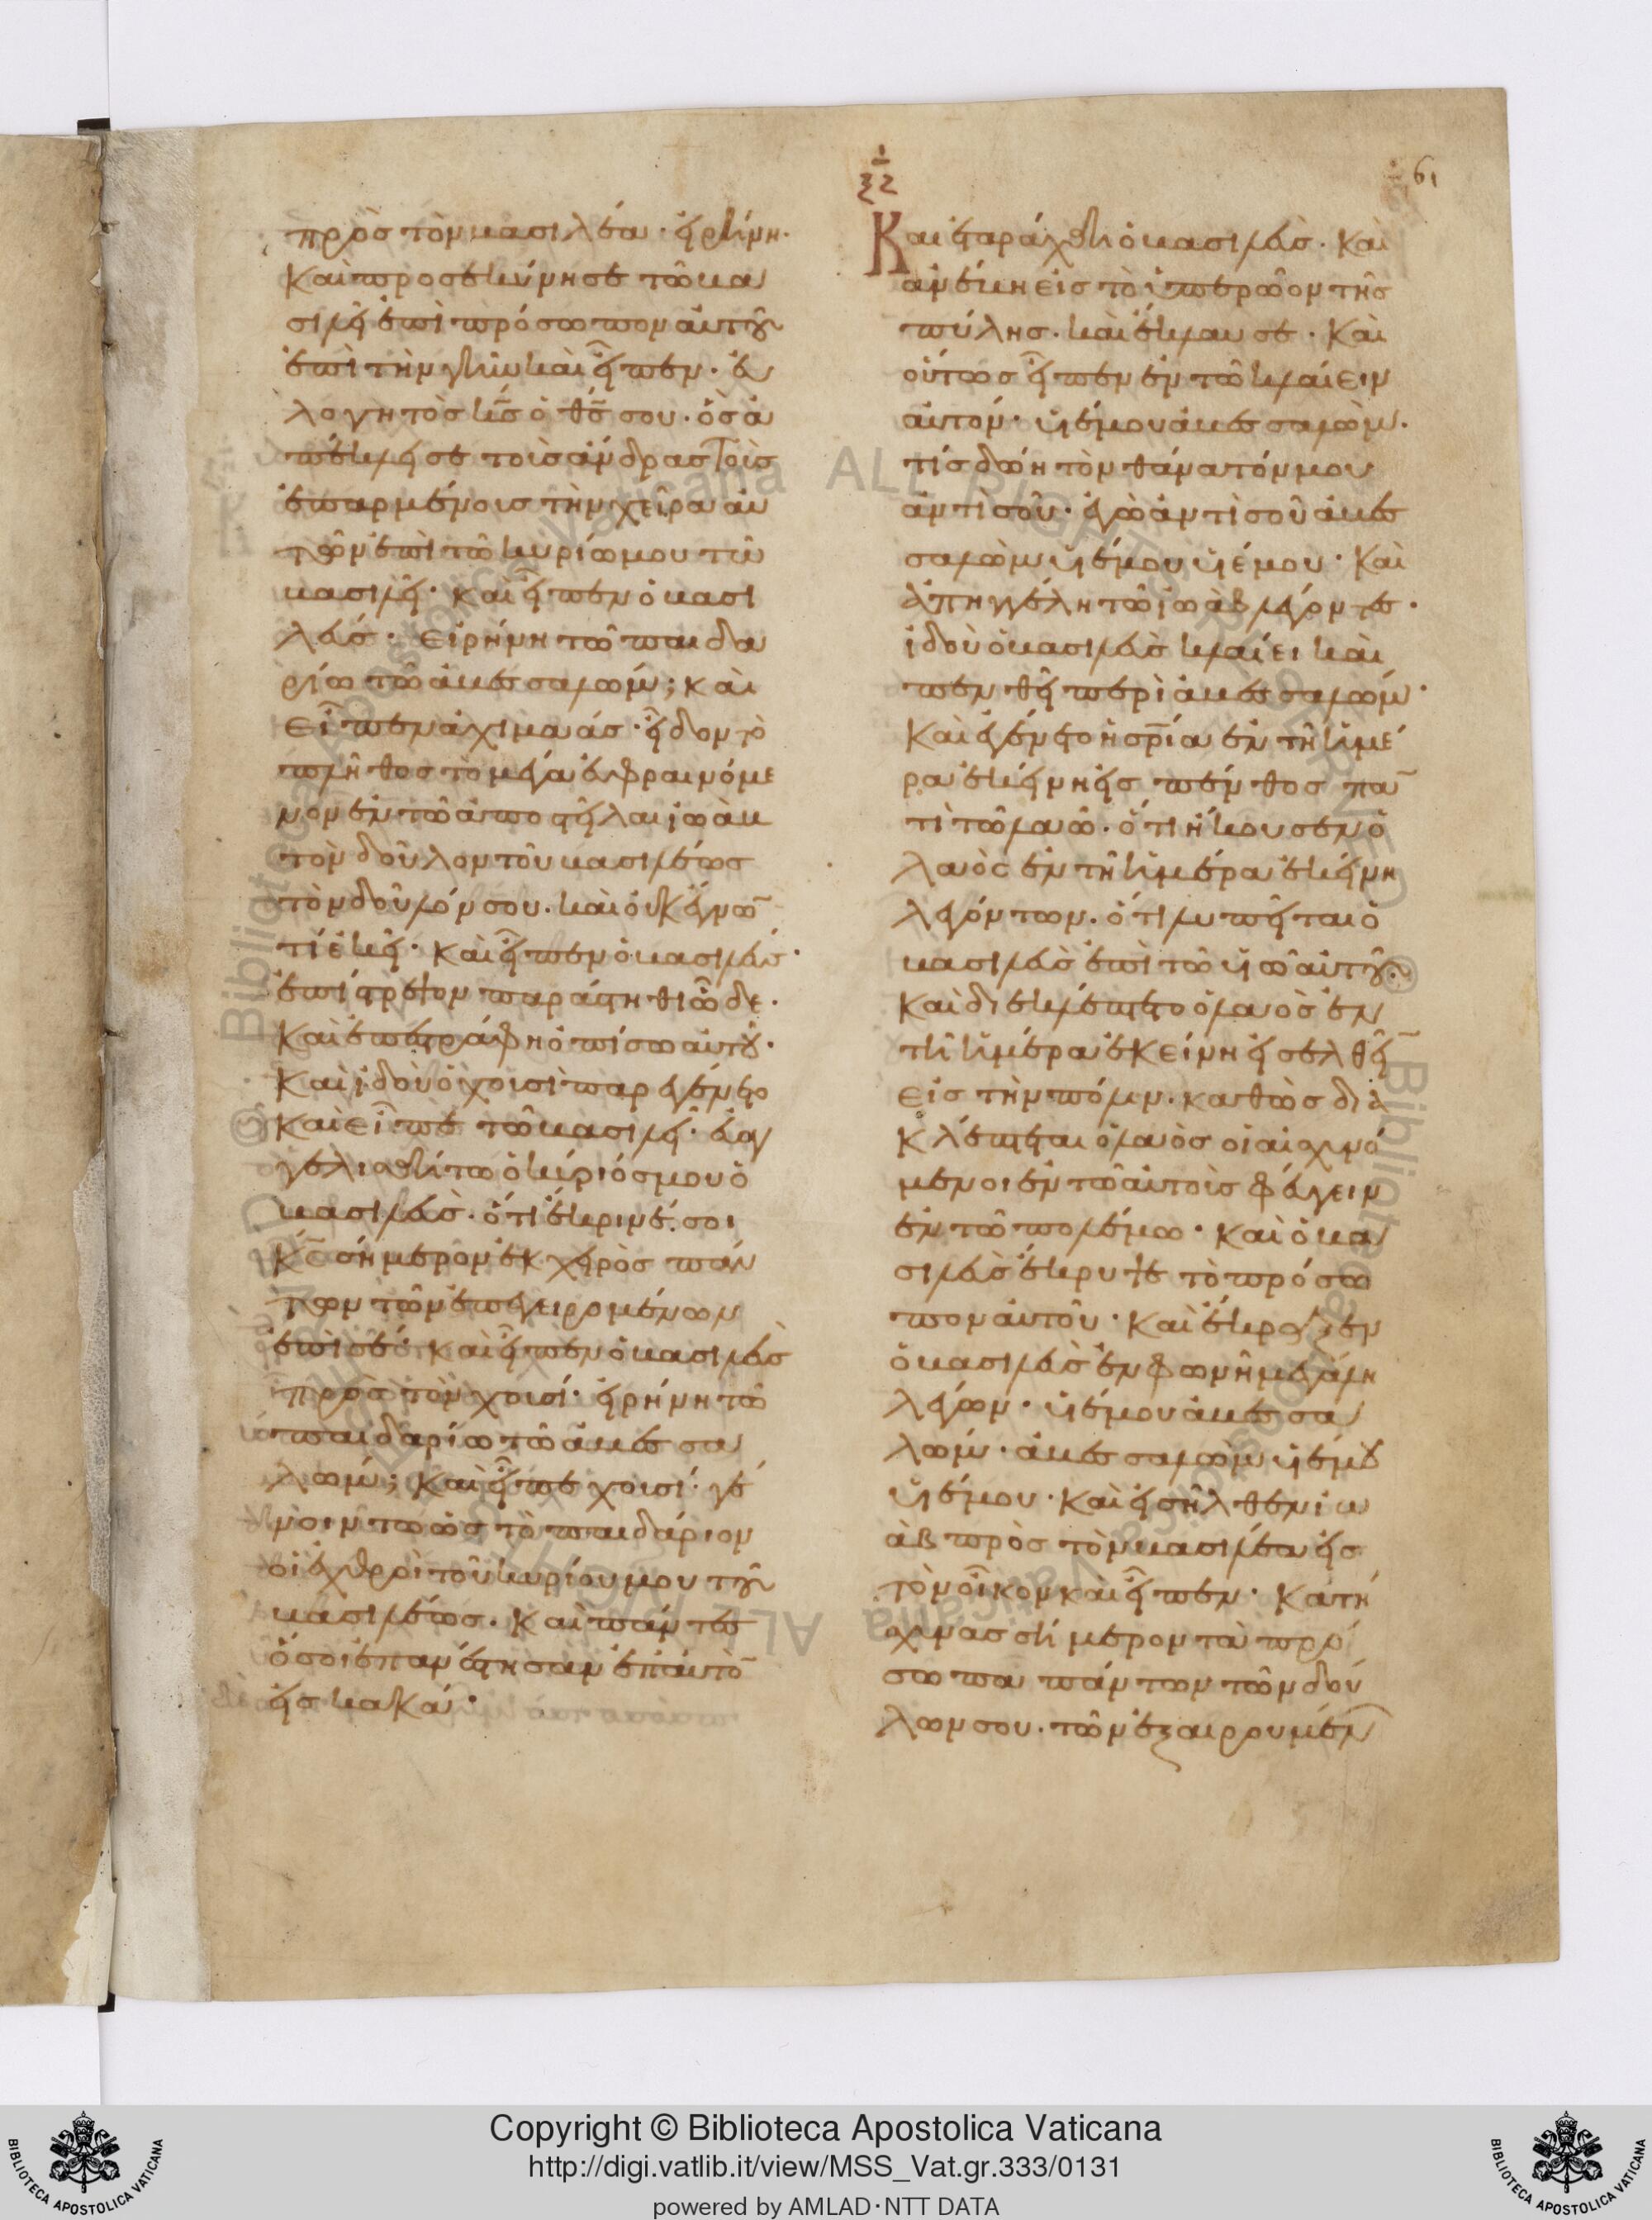 61
ξζ
πρὸς τὸν βασιλέα· εἰρήνη·
Καὶ προσεκύνησε τῶ βα
σιλεῖ ἐπὶ πρόσωπον αὐτοῦ
ἐπὶ τὴν γῆν καὶ εἶπεν· εὐ
λογητὸς κ̅ς̅ ὁ θ̅ς̅ σου· ὃς ἀ
πέκλεισε τοὺς ἄνδρας τοὺς
ἐπαρμένους τὴν χεῖρα αὐ
τῶν ἐπὶ τῶ κυρίω μου τῶ
βασιλεῖ· καὶ εἶπεν ὁ βασι
λεύς· εἰρήνη τῶ παιδα
ρίω τῶ ἀβεσσαλώμ; καὶ
εἶπεν ἀχιμαάς· εἶδον τὸ
πλῆθος τὸ μέγα εὐφραινόμε
νον ἐν τῶ ἀποστεῖλαι ἰωὰβ
τὸν δοῦλον τοῦ βασιλέως
τὸν δοῦλόν σου. καὶ οὐκ ἔγνω̅
τί ἐκεῖ· καὶ εἶπεν ὁ βασιλεύς·
ἐπίστρεψον παράστηθι ὧδε·
Καὶ ἐπεστράφη ὀπίσω αὐτοῦ·
Καὶ ἰδοὺ ὁ χουσὶ παρεγένετο
καὶ εἶπε τῶ βασιλεῖ· εὐαγ
γελισθήτω ὁ κύριός μου ὁ
βασιλεύς. ὅτι ἔκρινέ σοι
κ̅ς̅ σήμερον ἐκ χειρὸς πάν
των τῶν ἐπεγειρομένων
ἐπὶ σέ· καὶ εἶπεν ὁ βασιλεὺς
πρὸς τὸν χουσί· εἰρήνη τῶ
παιδαρίω τῶ ἀβεσσα
λώμ; καὶ εἶπε χουσί· γέ
νοιντο ὡς τὸ παιδάριον
οἱ ἐχθροὶ τοῦ κυρίου μου τοῦ
βασιλέως. καὶ πάντες
ὅσοι ἐπανέστησαν ἐπ' αὐτὸ̅
εἰς κακά·
Και ἐταράχθη ὁ βασιλεύς. καὶ
ἀνέβη εἰς τὸ ὑπερῶον τῆς
πύλης. καὶ ἔκλαυσε. καὶ
οὕτως εἶπεν ἐν τῶ κλαίειν
αὐτόν· υἱέ μου ἀβεσσαλώμ.
τίς δώη τὸν θάνατόν μου
ἀντὶ σοῦ· ἐγὼ ἀντὶ σοῦ ἀβεσ
σαλὼμ υἱέ μου υἱέ μου· καὶ
ἀπηγγέλη τῶ ἰωὰβ λέγοντες·
ἰδοὺ ὁ βασιλεὺς κλαίει καὶ
πενθεῖ περὶ ἀβεσσαλώμ·
Καὶ ἐγένετο ἡ σ̅ρ̅ία ἐν τῆ ἡμέ
ρα ἐκείνη εἰς πένθος πα̅
τὶ τῶ λαῶ. ὅτι ἤκουσεν ὁ
λαὸς ἐν τῆ ἡμέρα ἐκείνη
λεγόντων. ὅτι λυπεῖται ὁ
βασιλεὺς ἐπὶ τῶ υἱῶ αὐτοῦ.
Καὶ διεκλέπτετο ὁ λαὸς ἐν
τῆ ἡμέρα ἐκείνη εἰσελθεῖ̅
εἰς τὴν πόλιν. καθὼς δια
κλέπτεται ὁ λαὸς οἱ αἰσχυνό
μενοι ἐν τῶ αὐτοὺς φεύγειν
ἐν τῶ πολέμω. καὶ ὁ βα
σιλεὺς ἔκρυψε τὸ πρόσω
πον αὐτοῦ· καὶ ἔκραζεν
ὁ βασιλεὺς ἐν φωνῆ μεγάλη
λέγων· υἱέ μου ἀβεσσα
λώμ· ἀβεσσαλὼμ υἱέ μου
υἱέ μου. καὶ εἰσῆλθεν ἰω
ὰβ πρὸς τὸν βασιλέα εἰς
τὸν οἶκον καὶ εἶπεν· κατή
σχυνας σήμερον τὰ πρό
σωπα πάντων τῶν δού
λων σου. τῶν ἐξαιρουμέν
Copyright © Biblioteca Apostolica Vaticana
http://digi.vatlib.it/view/MSS_Vat.gr.333/0131
powered by AMLAD·NTT DATA
BIBLIOTECA APOSTOLICA VATICANA
BIBLIOTECA APOSTOLICA VATICANA